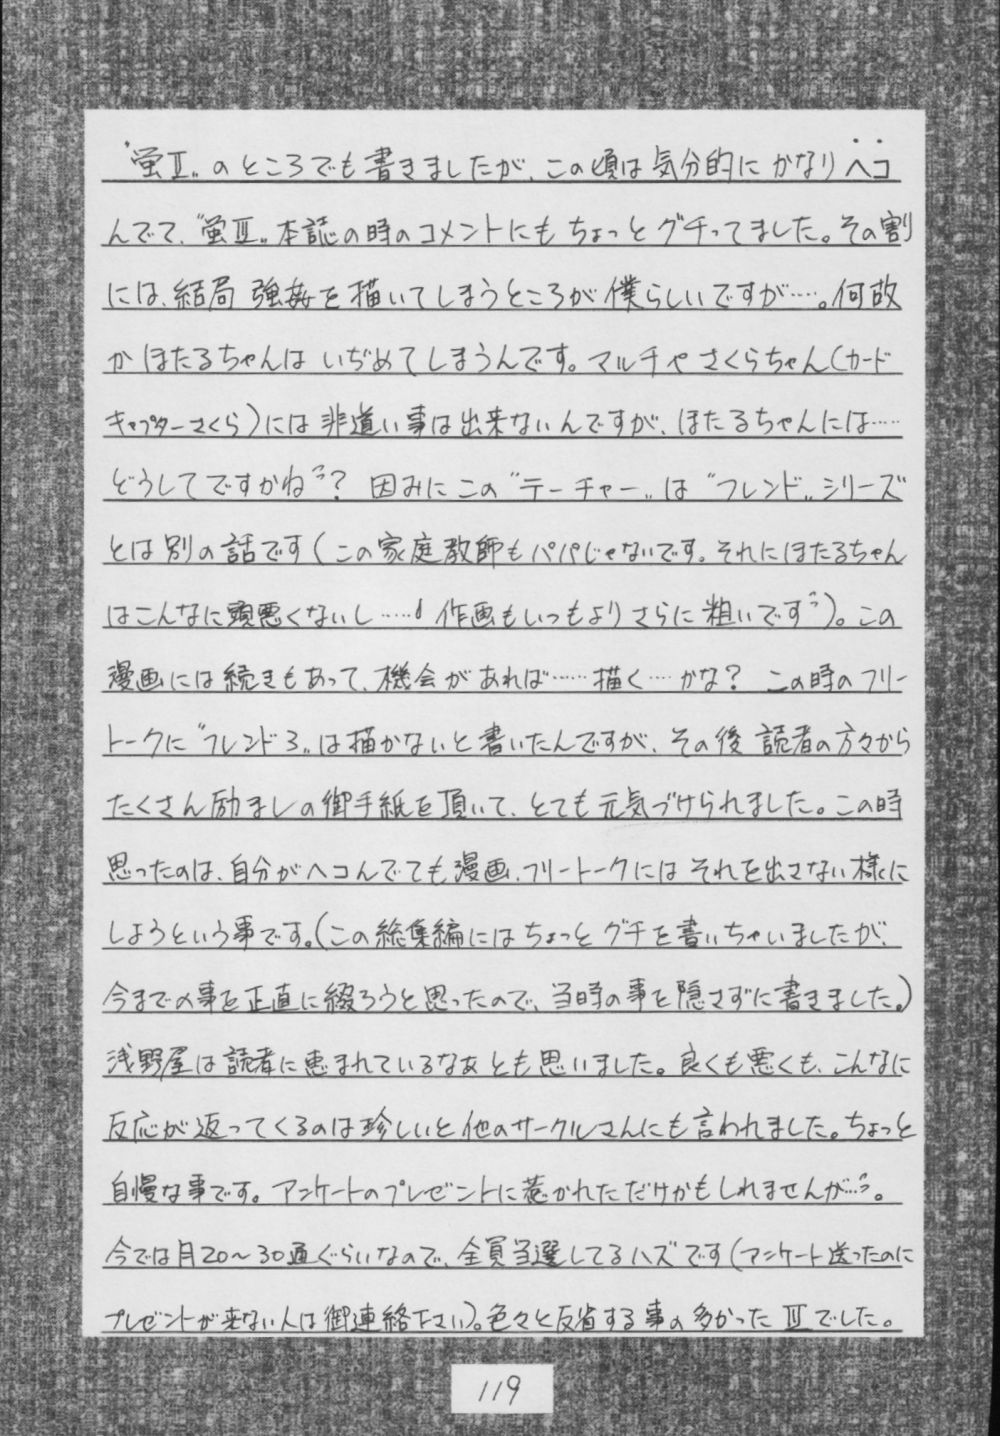 〝蛍Ⅱ〟のところでも書きましたが、この頃は気分的にかなりヘコ
んでて、〝蛍Ⅲ〟本誌の時のコメントにもちょっとグチってました。その割
には、結局 強姦を描いてしまうところが僕らしいですが……。何故
かほたるちゃんは いぢめてしまうんです。マルチやさくらちゃん(カード
キャプターさくら)には非道い事は出来ないんですが、ほたるちゃんには……
どうしてですかね？ 因みにこの〝テーチャー〟は〝フレンド〟シリーズ
とは別の話です(この家庭教師もパパじゃないです。それにほたるちゃん
はこんなに頭悪くないし……! 作画もいつもよりさらに粗いです)。この
漫画には続きもあって、機会があれば……描く…かな？ この時のフリー
トークに〝フレンド3〟は描かないと書いたんですが、その後 読者の方々から
たくさん励ましの御手紙を頂いて、とても元気づけられました。この時
思ったのは、自分がヘコんでても漫画、フリートークにはそれを出さない様に
しようという事です。(この総集編にはちょっとグチを書いちゃいましたが、
今までの事を正直に綴ろうと思ったので、当時の事を隠さずに書きました。)
浅野屋は読者に恵まれているなぁとも思いました。良くも悪くも、こんなに
反応が返ってくるのは珍しいと他のサークルさんにも言われました。ちょっと
自慢な事です。アンケートのプレゼントに惹かれただけかもしれませんが…。
今では月20〜30通ぐらいなので、全員当選してるハズです(アンケート送ったのに
プレゼントが来ない人は御連絡下さい)。色々と反省する事の多かったⅢでした。
119